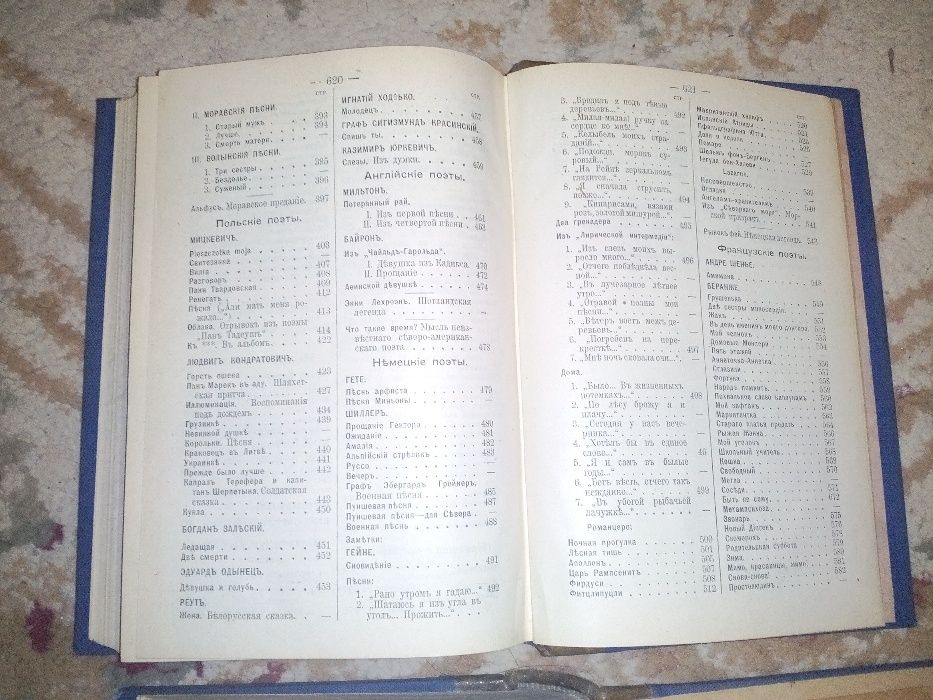 — 620 —
СТР.
II. МОРАВСКІЯ ПѢСНИ.
1. Старый мужъ . 393
2. Лучше. . . . . 394
3. Смерть матери. . —
III. ВОЛЫНСКІЯ ПѢСНИ.
1. Три сестры . . . . . 395
2. Бездолье . . . . . —
3. Суженый . . . . . 396
Альфусъ. Моравское преданіе. 397
Польскіе поэты.
МИЦКЕВИЧЪ.
Pieszczotka moja — 403
Свитезянка . . . . 407
Вилія . . . . . . 408
Разговоръ . . . . 409
Пани Твардовская . . . 412
Ренегатъ . . . . . —
Пѣсня („Али мать меня ро-
жала...“) . . . . 413
Облава. Отрывокъ изъ поэмы
„Панъ Тадеушъ“ . . . 414
Къ ***. Въ альбомъ. . . 422
ЛЮДВИГЪ КОНДРАТОВИЧЪ.
Горсть пшена . . . . 423
Панъ Марекъ въ аду. Шляхет-
ская притча . . . . 427
Иллюминація. Воспоминанія
подъ дождемъ . . . . 434
Грузинкѣ . . . . . 439
Невинной душкѣ . . . —
Корольки. Пѣсня . . . —
Краковецъ въ Литвѣ . . 440
Украинкѣ . . . . . 441
Прежде было лучше . . . 442
Капралъ Терефера и капи-
танъ Шерпетына. Солдатская
сказка . . . . . 443
Кукла . . . . . . 450
БОГДАНЪ ЗАЛѢСКІЙ.
Ледащая . . . . . 451
Двѣ смерти . . . . 452
ЭДУАРДЪ ОДЫНЕЦЪ.
Дѣвушка и голубь . . . 453
РЕУТЪ.
Жена. Бѣлорусская сказка. . —
СТР.
ИГНАТІЙ ХОДЗЬКО.
Молодецъ . . . . . 457
ГРАФЪ СИГИЗМУНДЪ КРАСИНСКІЙ.
Спишь ты. . . . . 458
КАЗИМИРЪ ЮРКЕВИЧЪ.
Слезы. Изъ думки. . . . 459
Англійскіе поэты.
МИЛЬТОНЪ.
Потерянный рай.
I. Изъ первой пѣсни . 461
II. Изъ четвертой пѣсни . 463
БАЙРОНЪ.
Изъ „Чайльдъ-Гарольда“.
I. Дѣвушка изъ Кадикса. 470
II. Прощаніе . . . . 472
Аѳинской дѣвушкѣ . . . 474
Энни Лехроэнъ. Шотландская
легенда . . . . . —
Что такое время? Мысль неиз-
вѣстнаго сѣверо-американ-
скаго поэта . . . . 478
Нѣмецкіе поэты.
ГЕТЕ.
Пѣснь арфиста . . . . 479
Пѣсня Миньовы . . . . —
ШИЛЛЕРЪ.
Прощаніе Гектора . . . 480
Ожиданіе . . . . . 481
Амалія . . . . . . 482
Альпійскій стрѣлокъ . . 483
Руссо . . . . . . —
Вечеръ . . . . . . —
Графъ Эбергардъ Грейнеръ.
Военная пѣсня . . . 485
Пуншевая пѣсня . . . . 487
Пуншевая пѣсня—для Сѣвера . —
Военная пѣснь . . . . 488
Замѣтки:
ГЕЙНЕ.
Сновидѣніе . . . . . 491
Пѣсни:
1. „Рано утромъ я гадаю...“ 492
2. „Шатаюсь я изъ угла въ
уголъ... Прожить...“ . . —
— 621 —
СТР.
3. „Бродилъ я подъ тѣнью
деревьевъ...“ . . . . 492
4. „Милая-милая! ручку на
сердце ко мнѣ!...“ . . —
5. „Колыбель моихъ стра-
даній...“ . . . . . 493
6. „Подожди, морякъ су-
ровый...“ . . . . . —
7. „На Рейнѣ зеркальномъ
глядится...“ . . . . —
8. „Я сначала струсилъ,
было...“ . . . . . 494
9. „Кипарисами, вязами
розъ, золотой мишурей...“ . —
Два гренадера . . . . 495
Изъ „Лирической интермедіи“:
1. „Изъ слезъ моихъ вы-
росло много...“ . . . 496
2. „Отчего поблѣднѣла вес-
ной...“ . . . . . —
3. „Въ лучезарное лѣтнее
утро...“ . . . . . —
4. „Отравой полны мои
пѣсни...“ . . . . . —
5. „Вѣтеръ воетъ межъ де-
ревьевъ...“ . . . . —
6. „Погребенъ на пере-
кресткѣ...“ . . . . 497
7. „Мнѣ ночь сковала очи...“. —
Дома.
1. „Было... Въ жизненныхъ
потемкахъ...“ . . . . 498
2. „По лѣсу брожу я и
плачу...“ . . . . . —
3. „Сегодня у насъ вече-
ринка...“ . . . . . —
4. „Хотѣлъ бы въ единое
слово...“
5. „Я и самъ въ былые
годы...“ . . . . . —
6. „Богъ вѣсть, отчего такъ
нежданно...“ . . . . 499
7. „Въ убогой рыбачьей
лачужкѣ...“ . . . . —
Романцеро:
Ночная прогулка . . . . 500
Лѣсная тишь . . . . . 501
Аполлонъ . . . . . . 505
Царь Рампсенитъ . . . . 507
Фирдуси . . . . . . 508
Фитцлипуцли . . . . . 512
СТР.
Мавританскій князь
Испанскіе Атриды
Пфальцграфиня Ютта 524
Донна Клара
Помаре
Іегуда бен-Халеви
Lazarus.
Несовершенство
Оглядка
Ангелы-хранители 540
Изъ „Сѣвернаго моря“. Мор-
ской призракъ 541
Рыбокъ фей. Нѣмецкая легенда. 542
Французскіе поэты.
АНДРЕ ШЕНЬЕ.
548
БЕРАНЖЕ.
Грушенька . . . . . 549
Двѣ сестры милосердія . . 550
Жакъ . . . . . . 551
Въ день именинъ моего доктора. 552
Мой челнокъ
Домовые Монлери
Пять этажей
Аннеточка-Аннетка
Фортуна
Народъ помнитъ
Похвальное слово каплунамъ
Мой кафтанъ
Маркитантка
Стараго платья продать
Рыжая Жанна
Мой уголокъ
Школьный учитель . . . 568
Кошка . . . . . . 569
Свободный . . . . . 570
Метла . . . . . . —
Сосѣди . . . . . . 571
Быть по сему . . . . 572
Метампсихоза . . . . —
Звонарь . . . . . . 575
Новый Діогенъ . . . . 576
Скоморохъ . . . . . 578
Родительская суббота . . 579
Зима . . . . . . . 580
Мамо, красавицы, мимо . . 581
Снова-снова! . . . . 582
Простолюдинъ